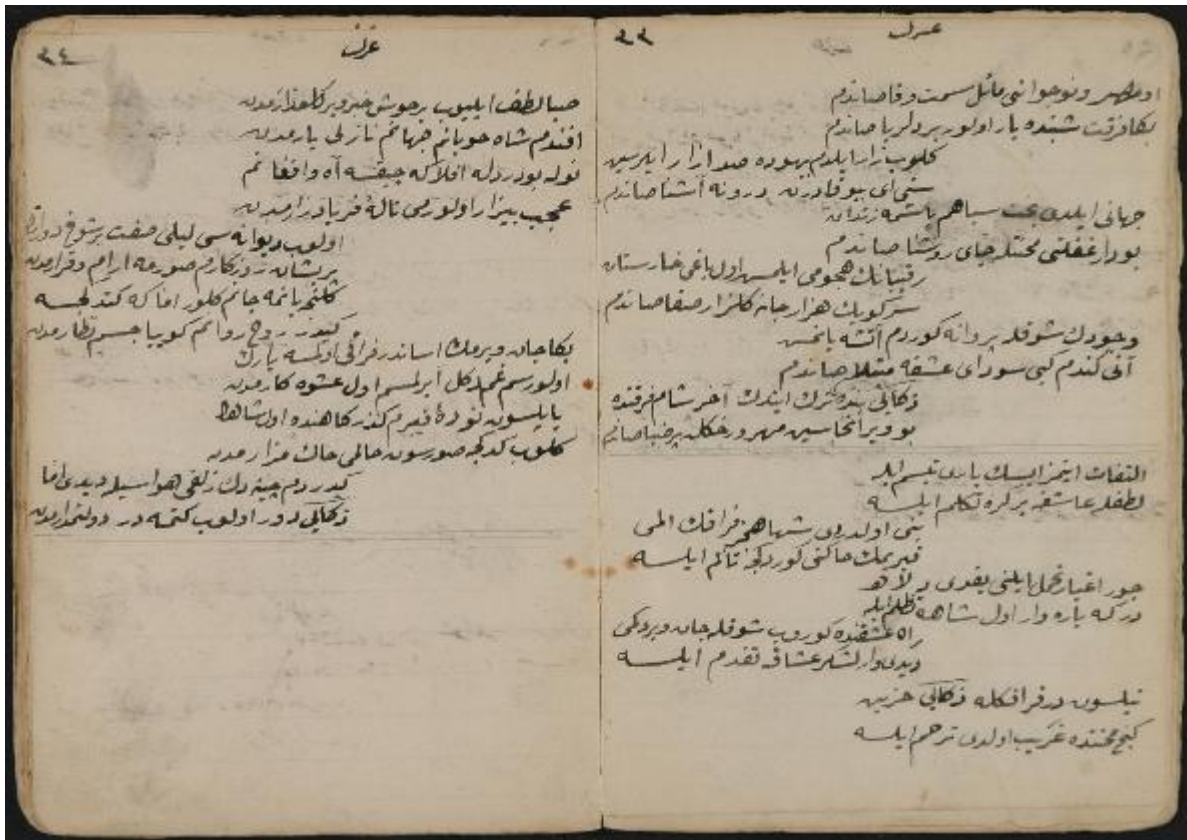 غزل
٣٣
او مهر و نوجوانی مائل سمت وفا صاندم
بكا فرقت شبنده یار اولور بر دلربا صاندم
كلوب زار ایلدم بیهوده صد ازار ایلرسین
سنی ای بیوفا درد درونه آشنا صاندم
جهانی ایلدی بخت سیاهم باشمه زندان
بو دار غفلتی محنتله جای روشنا صاندم
رقیبانك هجومی ایلمس اول باغی خارستان
سر كویك هزار جانه كلزار صفا صاندم
وجودك شوقله پروانه كوردم آتشه یانمش
آنی كندم كبی سودای عشقه مبتلا صاندم
ذكائی بنده ترك ایتدك آخر شام فرقتده
بو ویرانخاسین مهر رخكله پر ضیا صاندم
التفات ایتمز ایسك باری تبسم ایله
لطفله عاشقه بر كره تكلم ایلسه
بنی اولدردی شها هجر فراقك المی
قبریمك خاكنی كوردكجه تألم ایلسه
جور اغیار تحمل ایلنی یقدی دلا
دركه یاره وار اول شاهه تظلم ایله
راه عشقنده كوروب شوقله جان ویردیكمی
دیدی وار لشكر عشاقه تقدم ایلسه
نیلسون درد فراقكله ذكائی حزین
كنج محنتده غریب اولدی ترحم ایلسه
غزل
٣٤
صبا لطف ایلیوب بر خوش خبر ویر كلعذارمدن
افندم شاه خوبانم جهانم نازلی یارمدن
نوله بو درد ایله افلاكه چیقسه آه و افغانم
عجب بیزار اولورمی نالهٔ فریاد زارمدن
اولوب دیوانه سی لیلی صفت بر شوخ دورانك
پریشان روزكارم صورمه ارام و قرارمدن
كلنجه یانمه جانم كلور اما كه كتدكجه
كیدر روح روانم كوییا جسم نظارمدن
بكا جان ویرمك اساندر فراقی اولمسه یارك
اولورسم غم دكل ایرلمسم اول عشوه كارمدن
یاپلسون تودهٔ قبرم كذركاهنده اول شاهك
كلوب كتدكجه صورسون حالمی خاك مزارمدن
كیدردم چینه دك زلفی هواسیله دیدی اما
ذكائی دور اولوب كتمه در دولتمدارمدن